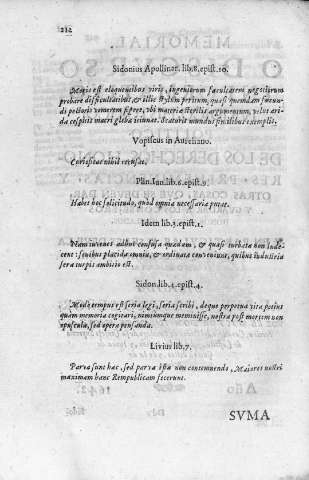 212
Sidonius Apollinar. lib.8.epist.10.
Magis est eloquentibus viris, ingeniorum facultatem negotiorum
probare difficultatibus, & illic stylum peritum, quasi quendam fœcun-
di pectoris vomerem figere, ubi materiæ sterilis argumentum, velut ari-
da cespitis macri gleba ieiunat. Scaturit mundus similibus exemplis.
Vopiscus in Aureliano.
Curiositas nihil recusat.
Plin. Iun. lib.6.epist.9.
Habet hoc solicitudo, quod omnia necessaria putat.
Idem lib.3.epist.1.
Nam iuvenes adhuc confusa quædam, & quasi turbata non inde-
cent: senibus placida omnia, & ordinata conveniunt, quibus industria
sera turpis ambitio est.
Sidon. lib.4.epist.4.
Modò tempus est seria legi, seria scribi, deque perpetua vita potius
quàm memoria cogitari, nimiumque meminisse, nostra post mortem non
opuscula, sed opera pensanda.
Livius lib.7.
Parva sunt hæc, sed parva ista non contemnendo, Maiores nostri
maximam hanc Rempublicam fecerunt.
SVMA